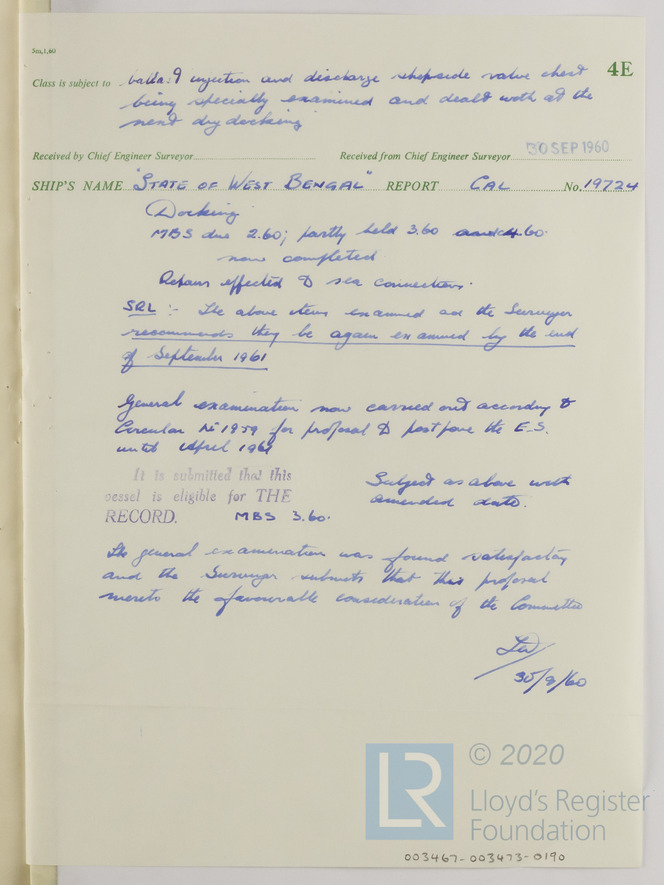 5m,1,60
4E
Class is subject to ballast injection and discharge shipside valve chest
being specially examined and dealt with at the
next drydocking
Received by Chief Engineer Surveyor Received from Chief Engineer Surveyor 30 SEP 1960
SHIP'S NAME "STATE OF WEST BENGAL" REPORT CAL No. 19724
Docking
MBS due 2.60; partly held 3.60 4.60.
now completed
Repairs effected to sea connections.
SRL :- The above items examined and the Surveyor
recommends they be again examined by the end
of September 1961
General examination now carried out according to
Circular No 1959 for proposal to postpone the E.S.
until April 1961
It is submitted that this
vessel is eligible for THE
RECORD. MBS 3.60.
Subject as above with
amended date.
The general examination was found satisfactory
and the Surveyor submits that this proposal
merits the favourable consideration of the Committee
30/9/60
LR
© 2020
Lloyd's Register
Foundation
003467-003473-0190